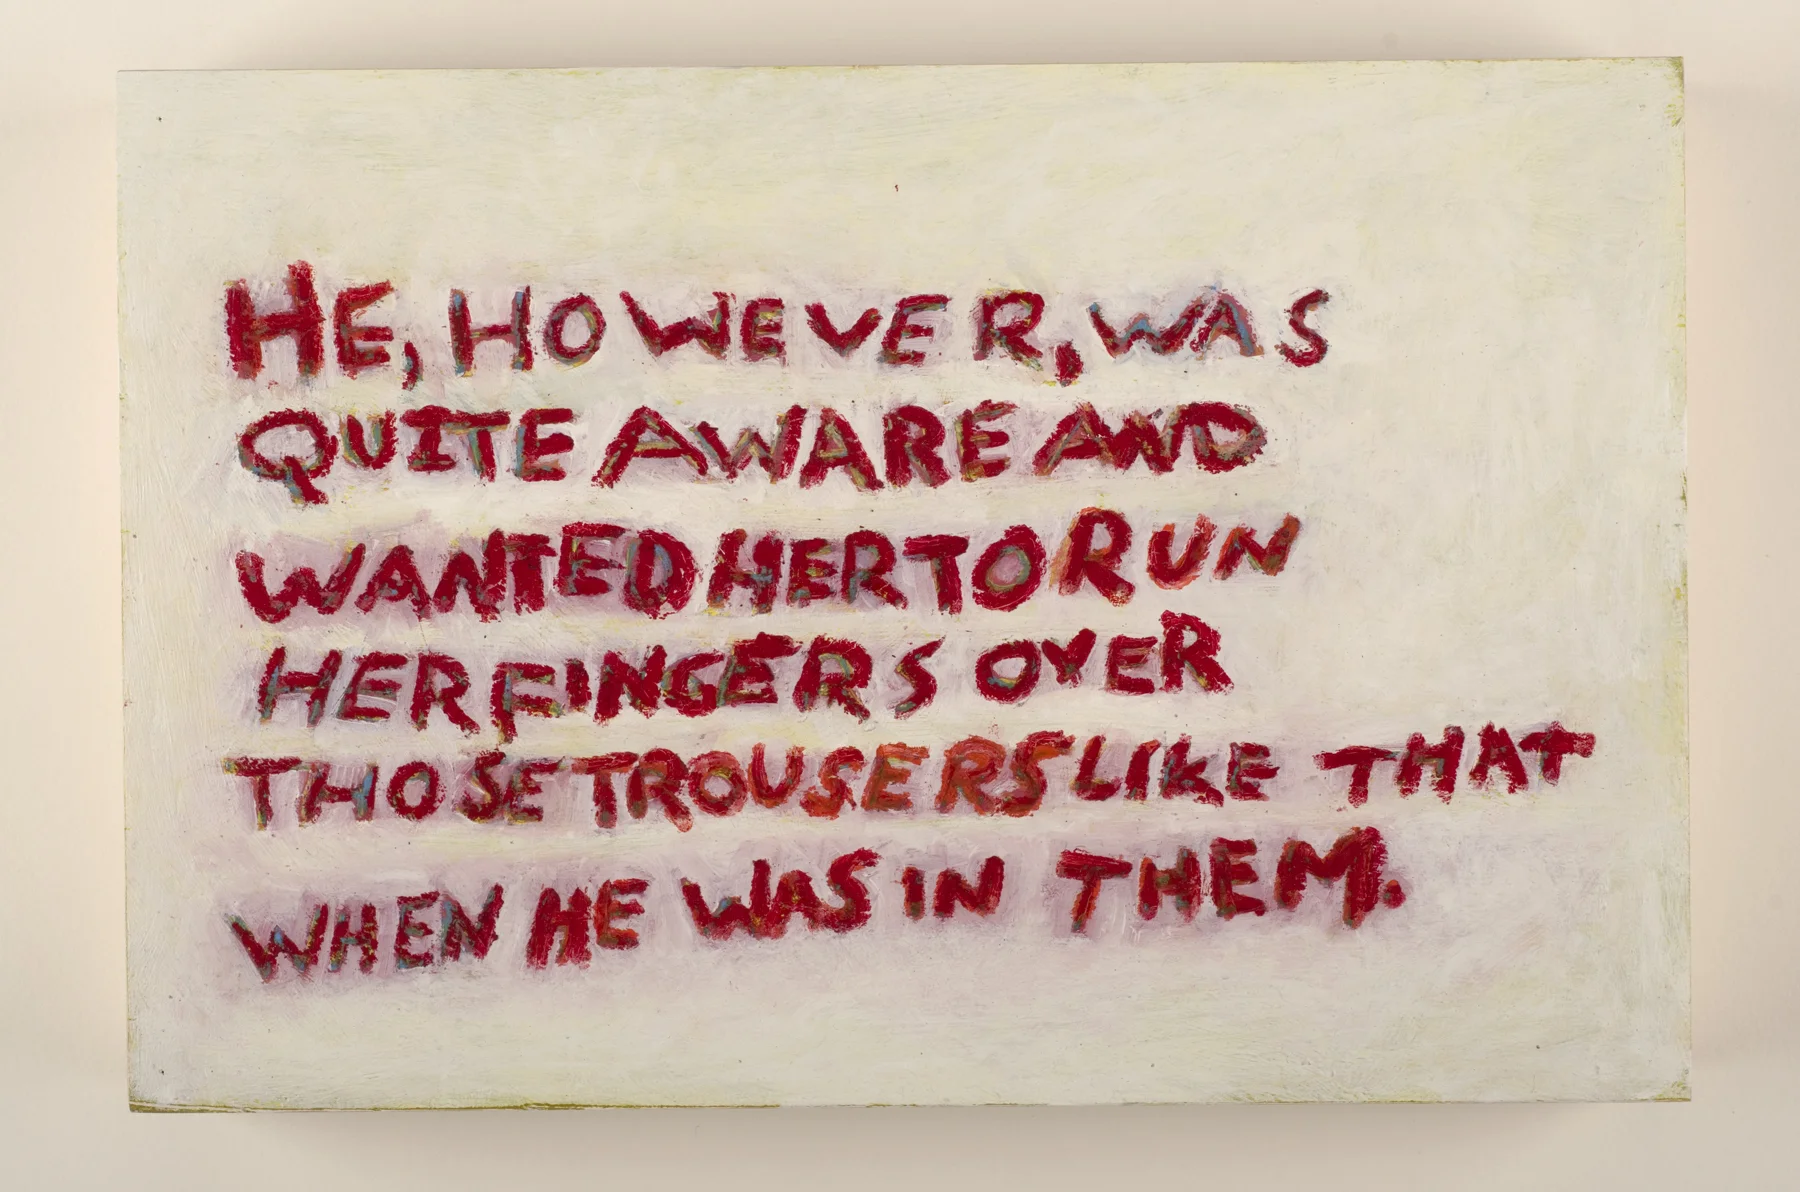 HE, HOWEVER, WAS
QUITE AWARE AND
WANTED HER TO RUN
HER FINGERS OVER
THOSE TROUSERS LIKE THAT
WHEN HE WAS IN THEM.